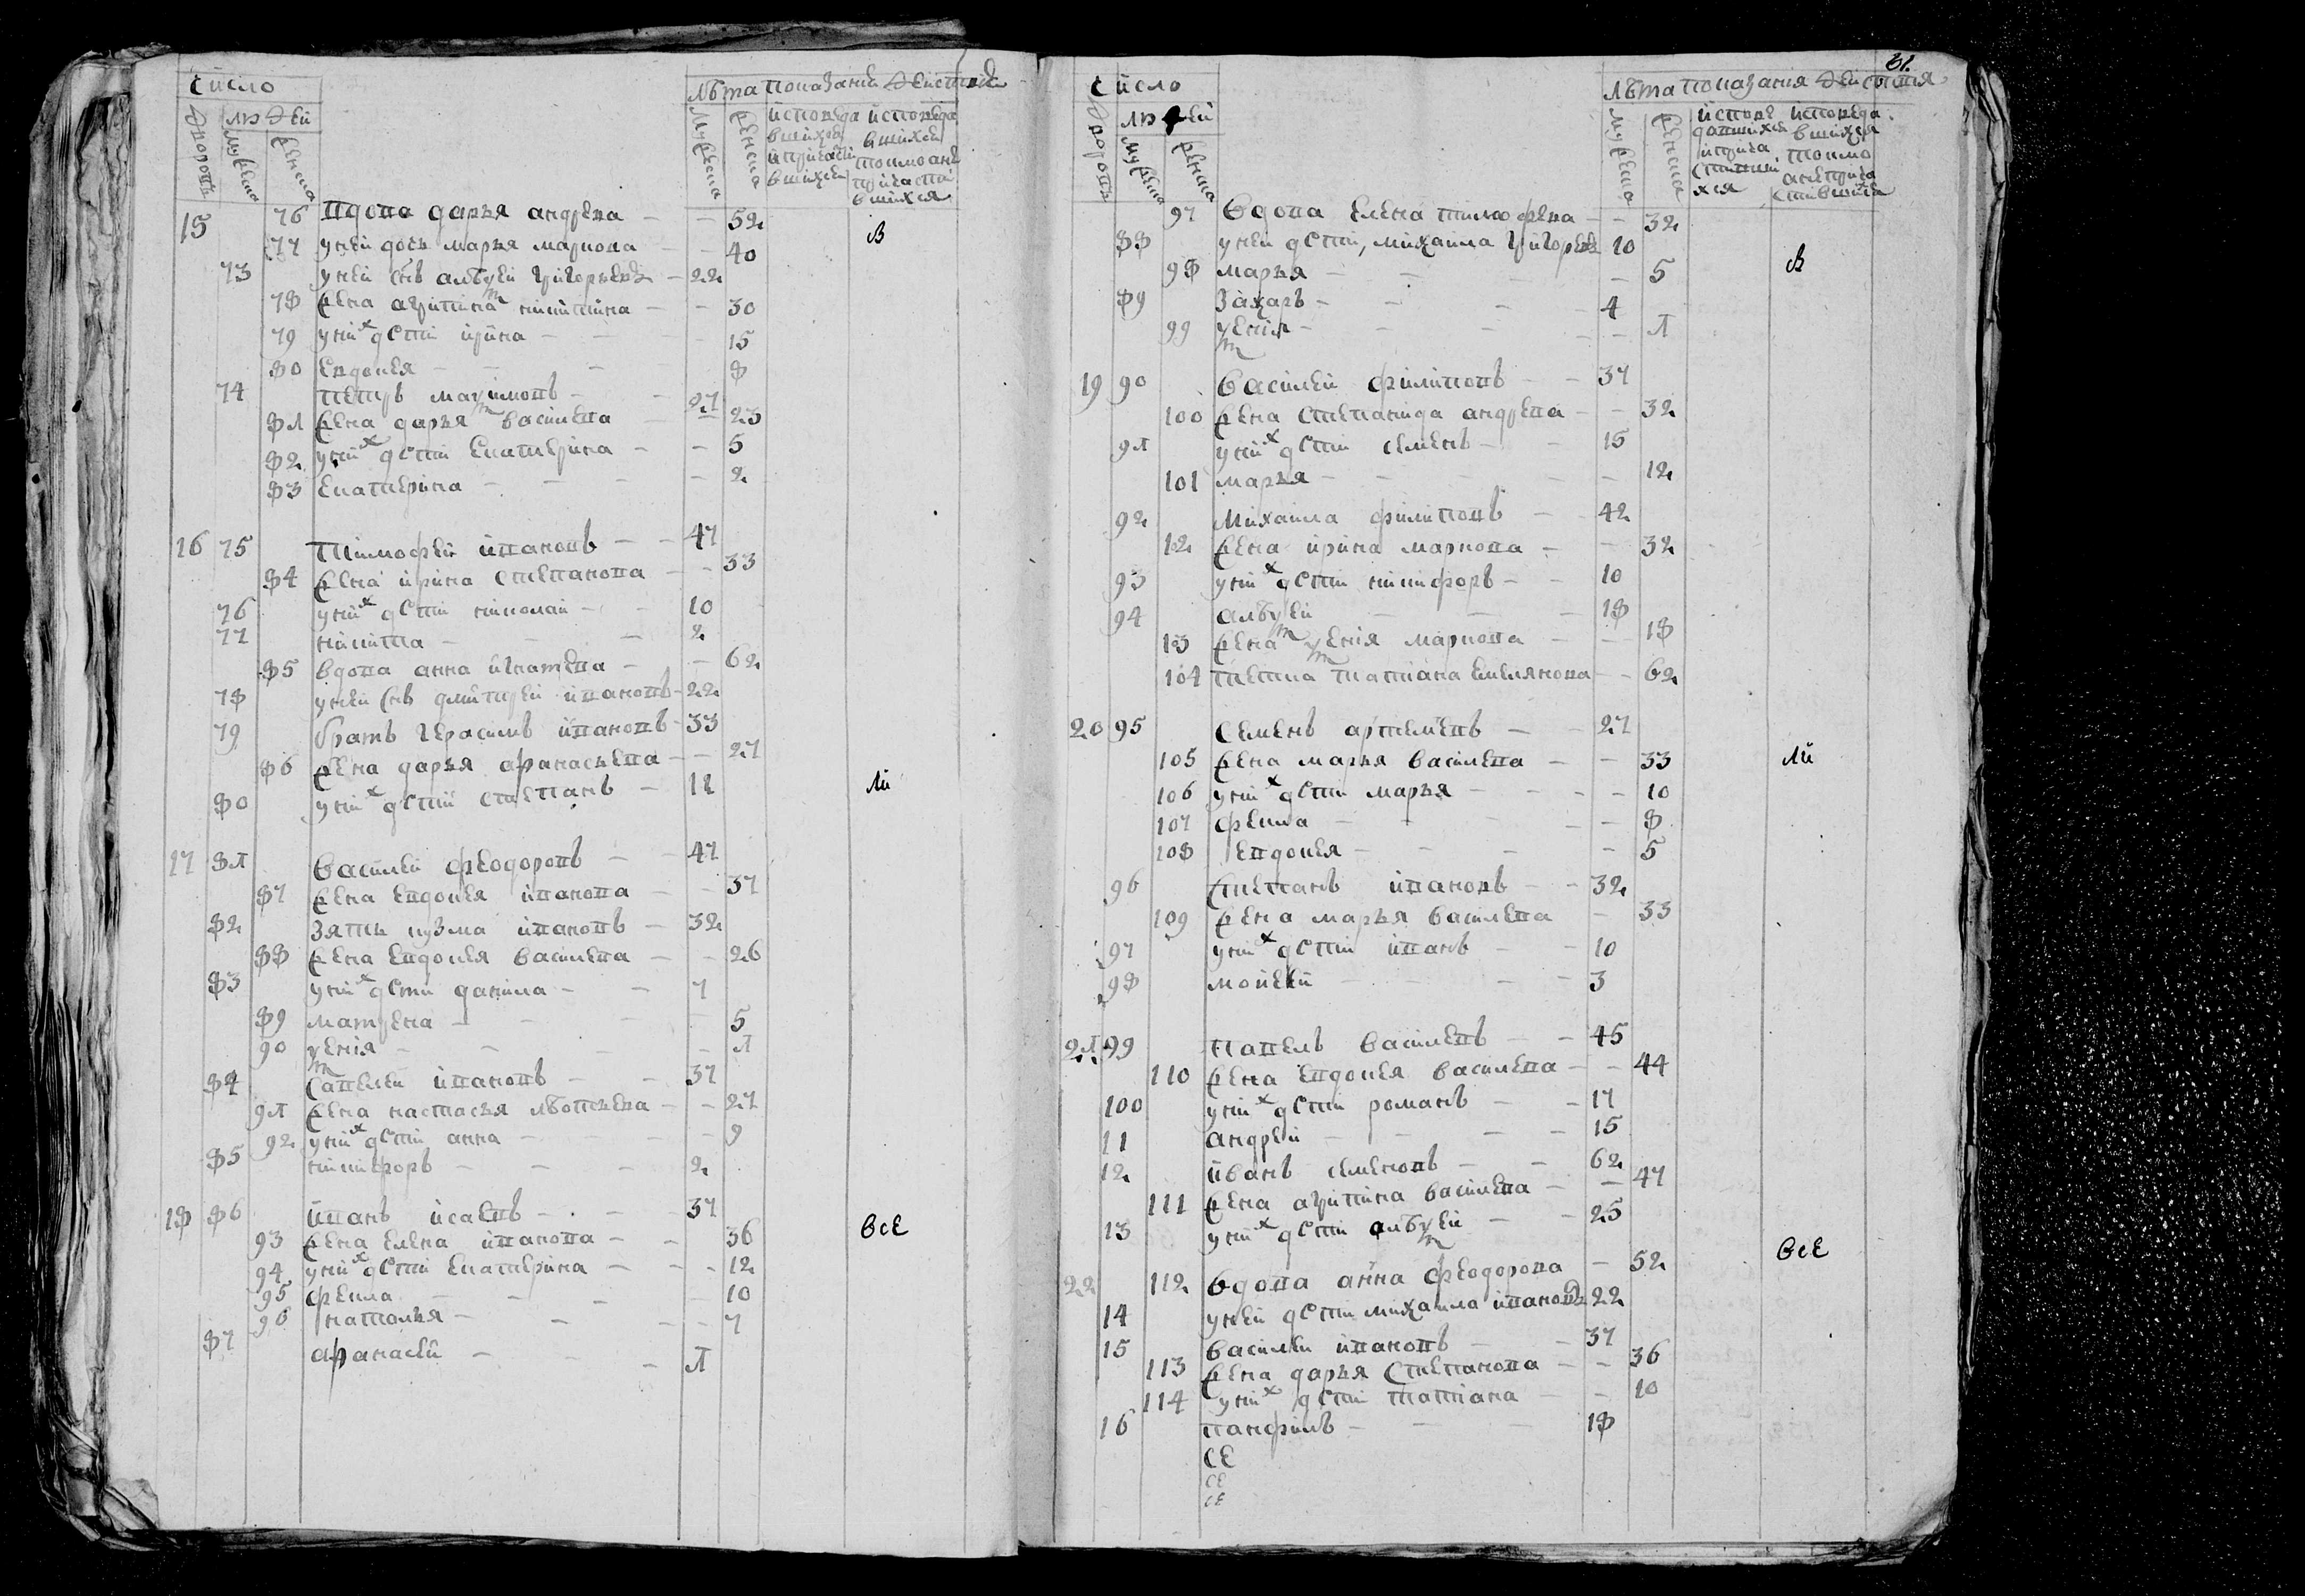 число
дворовъ
людей
мужеска
женска
лѣта показаніе действа
мужеска
женска
исповеда исповеда
вшихся вшихся
и причасти токмо а не
вшихся причасти
вшихся
15 76 вдова дарья андрева — — 52
77 у ней дочь марья маркова — — 40 в
73 у ней снъ алѣѯей григорьевъ — 22
78 жена агрипина никитина — — 30
79 у них дети ирина — — 15
80 евдокея — — 8
74 петръ маѯимовъ — — 27
81 жена дарья василева — 23
82 у них дети екатерина — — 5
83 екатерина — — — — 2
16 75 тимофей ивановъ — — 47
84 жена ирина степанова — — 33
76 у них дети николай — — 10
77 никита — — — 2
85 вдова анна игнатева — — 62
78 у ней снъ дмитрей ивановъ — 22
79 братъ герасимъ ивановъ — 33
86 жена дарья афанасьева — — 27
80 у них дети степанъ — 12 ли
17 81 василей феодоровъ — — 47
87 жена евдокея иванова — — 37
82 зять кузма ивановъ — 32
88 жена евдокея василева — — 26
83 у них дети данила — — 7
89 матрена — — — — 5
90 ѯенія — — — — 1
84 савелей ивановъ — — 37
91 жена настасья лѣонтьева — — 27
92 у них дети анна — — — — 9
85 никифоръ — — — 2
18 86 иванъ исаевъ — — — 37
93 жена елена иванова — — 36 все
94 у них дети екатерина — — — 12
95 фекла — — — — 10
96 наталья — — — — 7
87 афанасей — — — 1
31.
число
дворовъ
людей
мужеска
женска
лѣта показания действия
мужеска
женска
испове исповеда
давшихся вшихся
и прича токмо
стивши а не прича
хся стившися
97 вдова елена тимофева — — 32
88 у ней дети, михаила григорьевъ 10
98 марья — — — — 5 в
89 захаръ — — — — 4
99 ѯения — — — — 1
19 90 василей филиповъ — — 37
100 жена степанида андрева — — 32
91 у них дети семенъ — — 15
101 марья — — — — 12
92 михаила филиповъ — — 42
12 жена ирина маркова — — 32
93 у них дети никифоръ — — 10
94 алѣѯей — — — 18
13 жена ѯения маркова — — 18
104 тетка татиана емелянова — — 62
20 95 семенъ артемевъ — — 27
105 жена марья василева — — 33 ли
106 у них дети марья — — — — 10
107 фекла — — — — 8
108 евдокея — — — — 5
96 степанъ ивановъ — — 32
109 жена марья василева — 33
97 у них дети иванъ — — 10
98 мойсей — — — — 3
21 99 павелъ василевъ — — 45
110 жена евдокея василева — — 44
100 у них дети романъ — — 17
11 андрей — — — — 15
12 иванъ семеновъ — — 62
111 жена агрипина василева — — 47
13 у них дети алѣѯей — — 25
22 112 вдова анна феодорова — 52 все
14 у ней дети михаила ивановъ 22
15 василей ивановъ — — 37
113 жена дарья степанова — — 36
114 у них дети татиана — — 10
16 панфилъ — — — 18
се
се
се